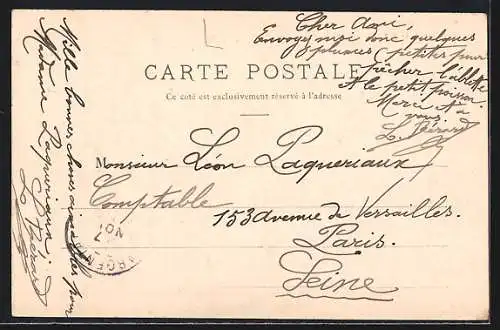 Cher Ami,
Envoyez moi donc quelques
plumes (petites pour
pêcher l'ablette
et le petit poisson
Merci et a
vous.
L. Pérard
CARTE POSTALE
Ce côté est exclusivement réservé à l'adresse
Monsieur Léon Laqueriaux
Comptable
153 avenue de Versailles.
Paris.
Seine
Mille bonnes choses aimables pour
Madame Laqueriaux
L. Pérard
7
NO